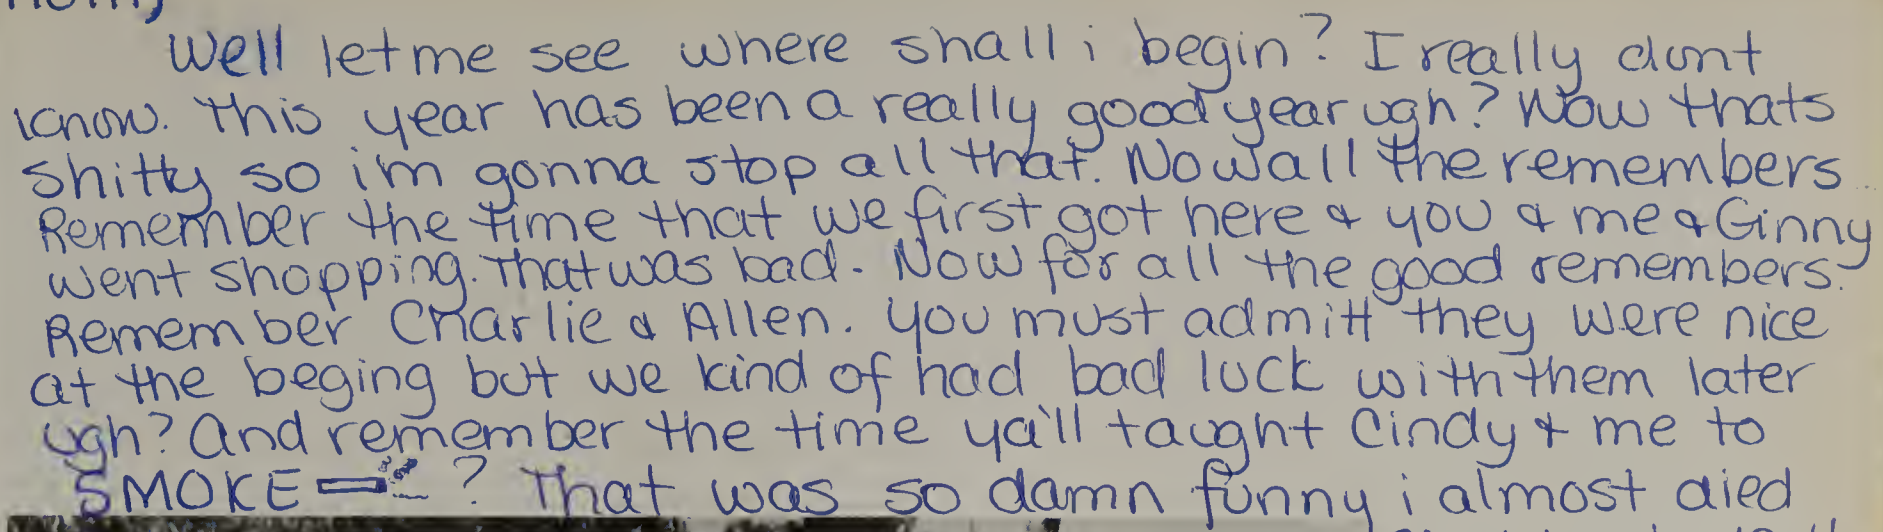 Well let me see where shall i begin? I really dont
know. This year has been a really good year ugh? Now thats
shitty so i'm gonna stop all that. Now all the remembers
Remember the time that we first got here & you & me & Ginny
went shopping. That was bad. Now for all the good remembers.
Remember Charlie & Allen. You must admitt they were nice
at the beging but we kind of had bad luck with them later
ugh? And remember the time ya'll taught Cindy & me to
SMOKE ? That was so damn funny i almost died